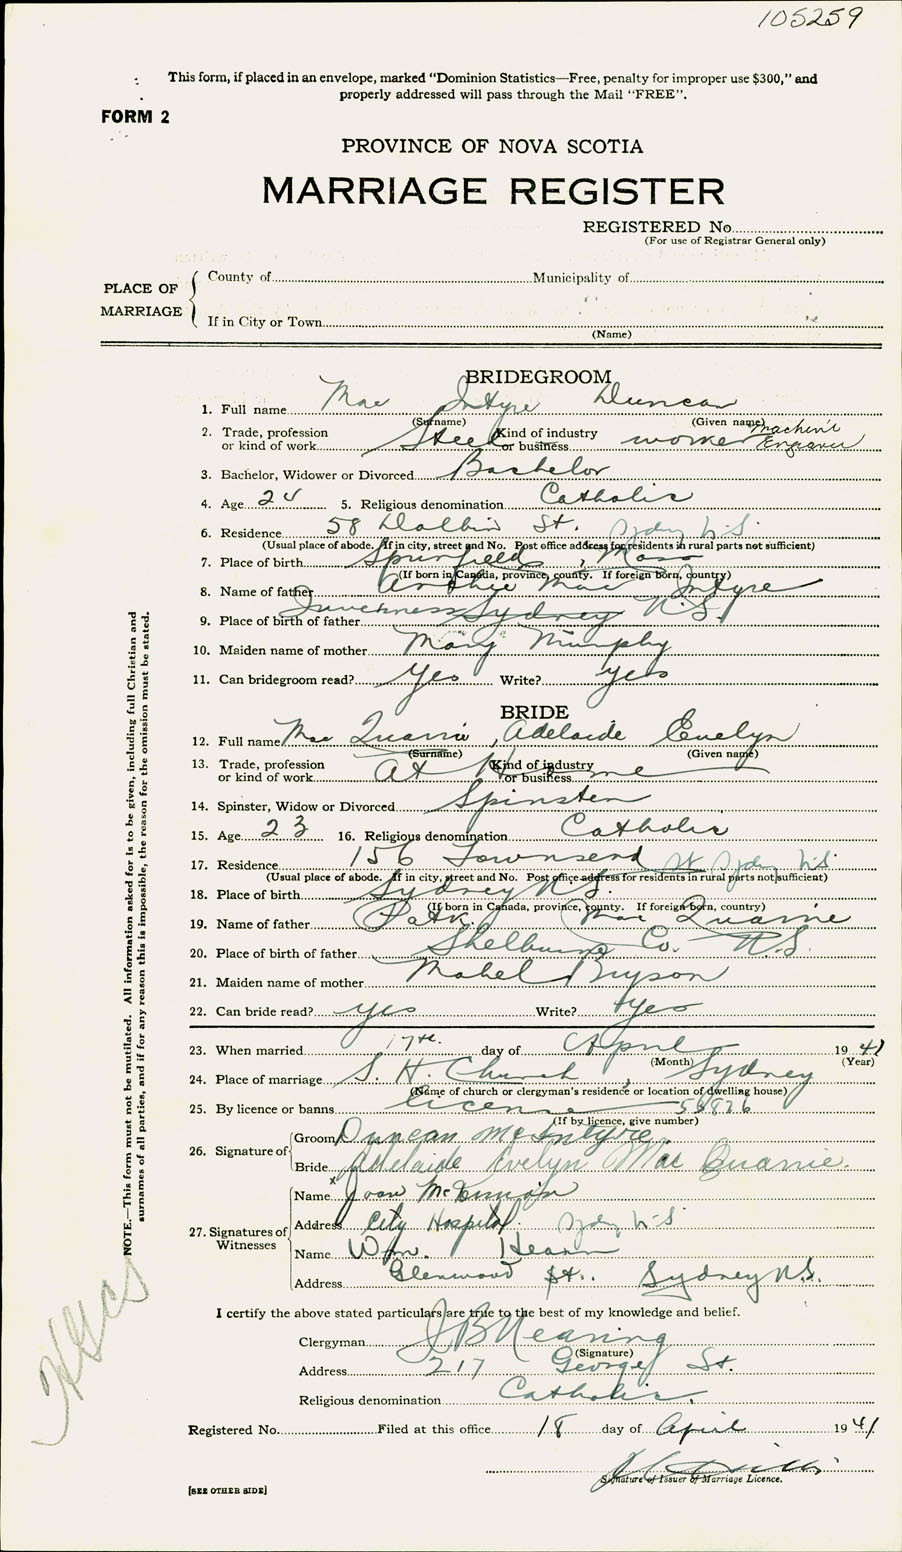 105259
This form, if placed in an envelope, marked "Dominion Statistics—Free, penalty for improper use $300," and
properly addressed will pass through the Mail "FREE".
FORM 2
PROVINCE OF NOVA SCOTIA
MARRIAGE REGISTER
REGISTERED No.
(For use of Registrar General only)
PLACE OF MARRIAGE
County of Municipality of
If in City or Town
(Name)
BRIDEGROOM
1. Full name Mac Intyre Duncan
(Surname) (Given name)
2. Trade, profession or kind of work Steel Kind of industry or business worker Machin't Engraver
3. Bachelor, Widower or Divorced Bachelor
4. Age 24 5. Religious denomination Catholic
6. Residence 58 Dolbin St. Sydney N.S.
(Usual place of abode. If in city, street and No. Post office address for residents in rural parts not sufficient)
7. Place of birth Springfield, Mass
(If born in Canada, province, county. If foreign born, country)
8. Name of father Archie Mac Intyre
9. Place of birth of father Inverness Sydney N.S.
10. Maiden name of mother Mary Murphy
11. Can bridegroom read? Yes Write? yes
BRIDE
12. Full name Mac Quarrie, Adelaide Evelyn
(Surname) (Given name)
13. Trade, profession or kind of work At Home Kind of industry or business
14. Spinster, Widow or Divorced Spinster
15. Age 23 16. Religious denomination Catholic
17. Residence 156 Townsend St Sydney N.S.
(Usual place of abode. If in city, street and No. Post office address for residents in rural parts not sufficient)
18. Place of birth Sydney N.S.
(If born in Canada, province, county. If foreign born, country)
19. Name of father Patk. Mac Quarrie
20. Place of birth of father Shelburne Co. N.S.
21. Maiden name of mother Mabel Bryson
22. Can bride read? yes Write? yes
23. When married 17th. day of April 1941
(Month) (Year)
24. Place of marriage S. H. Church, Sydney
(Name of church or clergyman's residence or location of dwelling house)
25. By licence or banns license 56826
(If by licence, give number)
26. Signature of Groom Duncan McIntyre
Bride Adelaide Evelyn Mac Quarrie.
27. Signatures of Witnesses
Name x Joan McKinnon
Address City Hospital. Sydney N.S.
Name Wm. Hearn
Address Glenwood St.. Sydney N.S.
I certify the above stated particulars are true to the best of my knowledge and belief.
Clergyman J B Nearing
(Signature)
Address 217 George St.
Religious denomination Catholic.
Registered No. Filed at this office 18 day of April 1941
Signature of Issuer of Marriage Licence.
[SEE OTHER SIDE]
NOTE.—This form must not be mutilated. All information asked for is to be given, including full Christian and
surnames of all parties, and if for any reason this is impossible, the reason for the omission must be stated.